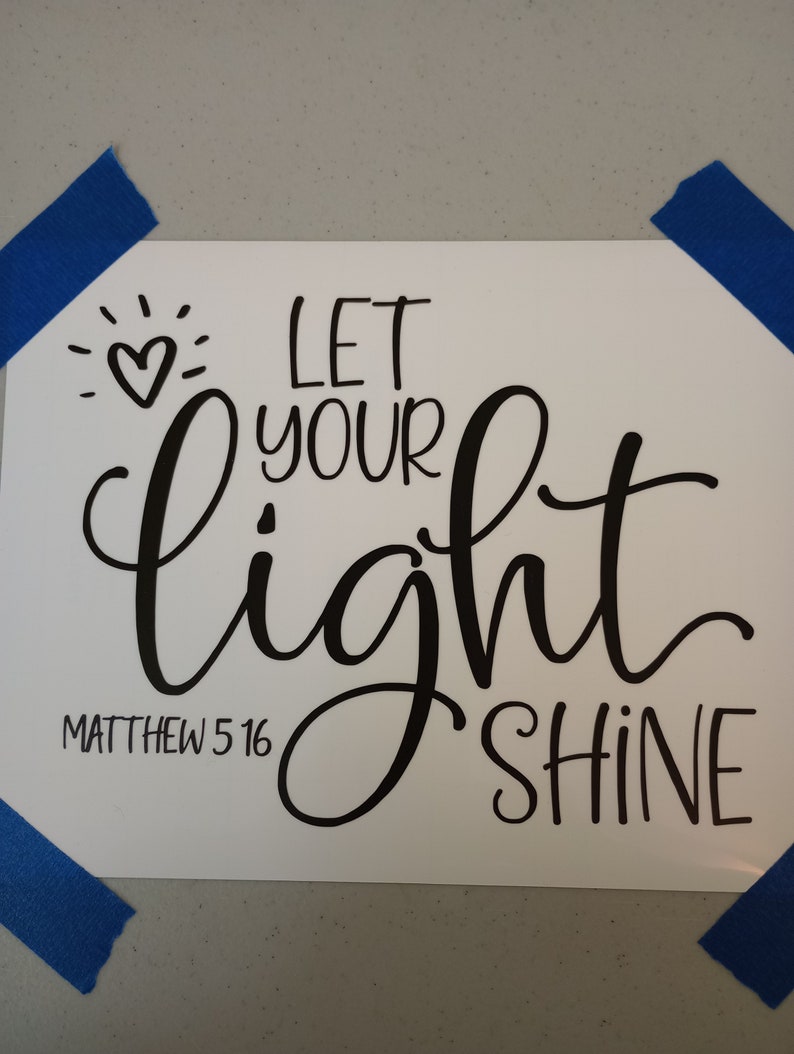 LET
YOUR
light
SHiNE
MATTHEW 5 16